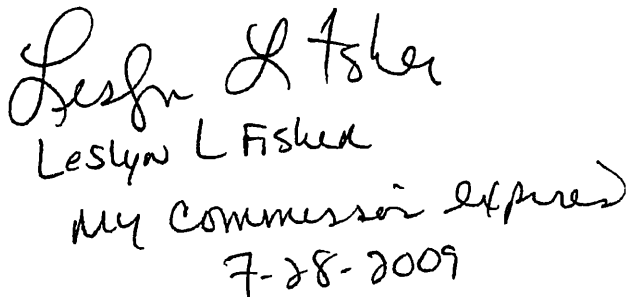 Leslyn L Fisher
Leslyn L Fisher
My Commission expires
7-28-2009